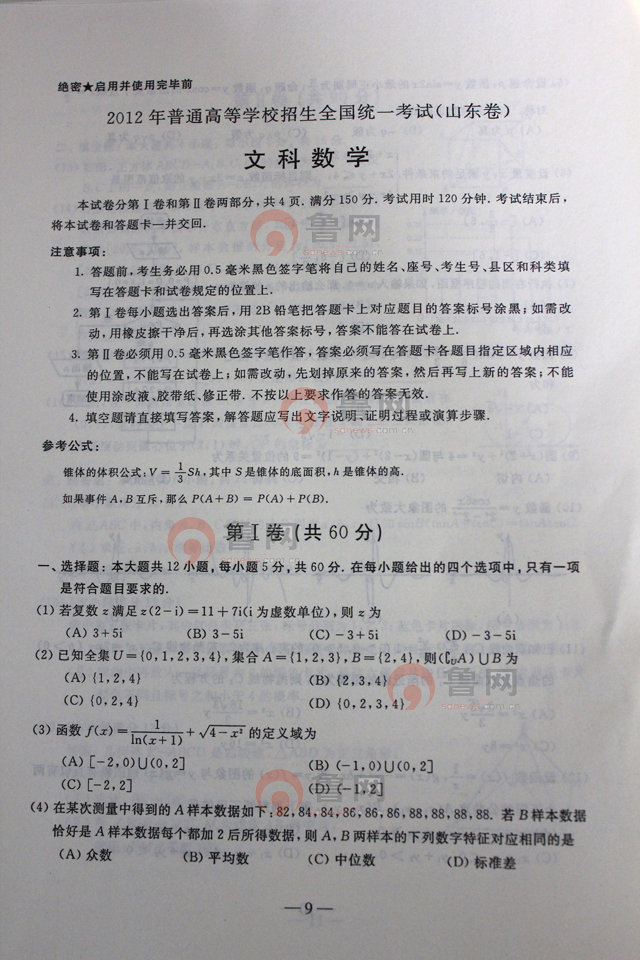 绝密★启用并使用完毕前
2012年普通高等学校招生全国统一考试(山东卷)
文科数学
本试卷分第Ⅰ卷和第Ⅱ卷两部分,共4页.满分150分.考试用时120分钟.考试结束后,
将本试卷和答题卡一并交回.
注意事项:
1. 答题前,考生务必用0.5毫米黑色签字笔将自己的姓名、座号、考生号、县区和科类填
写在答题卡和试卷规定的位置上.
2. 第Ⅰ卷每小题选出答案后,用2B铅笔把答题卡上对应题目的答案标号涂黑;如需改
动,用橡皮擦干净后,再选涂其他答案标号,答案不能答在试卷上.
3. 第Ⅱ卷必须用0.5毫米黑色签字笔作答,答案必须写在答题卡各题目指定区域内相应
的位置,不能写在试卷上;如需改动,先划掉原来的答案,然后再写上新的答案;不能
使用涂改液、胶带纸、修正带.不按以上要求作答的答案无效.
4. 填空题请直接填写答案,解答题应写出文字说明、证明过程或演算步骤.
参考公式:
锥体的体积公式:V=1/3Sh,其中S是锥体的底面积,h是锥体的高.
如果事件A,B互斥,那么P(A+B)=P(A)+P(B).
第Ⅰ卷(共60分)
一、选择题:本大题共12小题,每小题5分,共60分.在每小题给出的四个选项中,只有一项
是符合题目要求的.
(1)若复数z满足z(2-i)=11+7i(i为虚数单位),则z为
(A) 3+5i (B) 3-5i (C) -3+5i (D) -3-5i
(2)已知全集U={0,1,2,3,4},集合A={1,2,3},B={2,4},则(∁UA)∪B为
(A) {1,2,4} (B) {2,3,4}
(C) {0,2,4} (D) {0,2,3,4}
(3)函数f(x)=1/ln(x+1)+√(4-x²)的定义域为
(A) [-2,0)∪(0,2] (B) (-1,0)∪(0,2]
(C) [-2,2] (D) (-1,2]
(4)在某次测量中得到的A样本数据如下:82,84,84,86,86,86,88,88,88,88.若B样本数据
恰好是A样本数据每个都加2后所得数据,则A,B两样本的下列数字特征对应相同的是
(A) 众数 (B) 平均数 (C) 中位数 (D) 标准差
—9—
鲁网
sdnews.com.cn
鲁网
sdnews.com.cn
鲁网
鲁网
sdnews.com.cn
鲁网